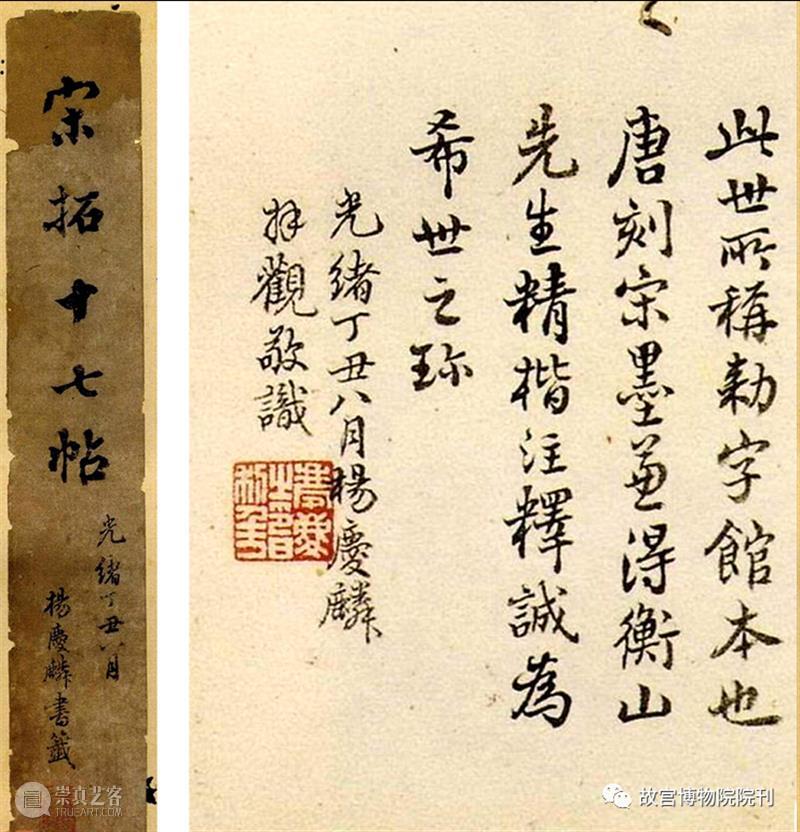 宋拓十七帖
光緒丁丑八月
楊慶麟書籤
此世所稱勅字館本也
唐刻宋墨兼得衡山
先生精楷注釋誠為
希世之珎
光緒丁丑八月楊慶麟
拜觀敬識
崇真艺客
TRUEART.COM
故宫博物院院刊